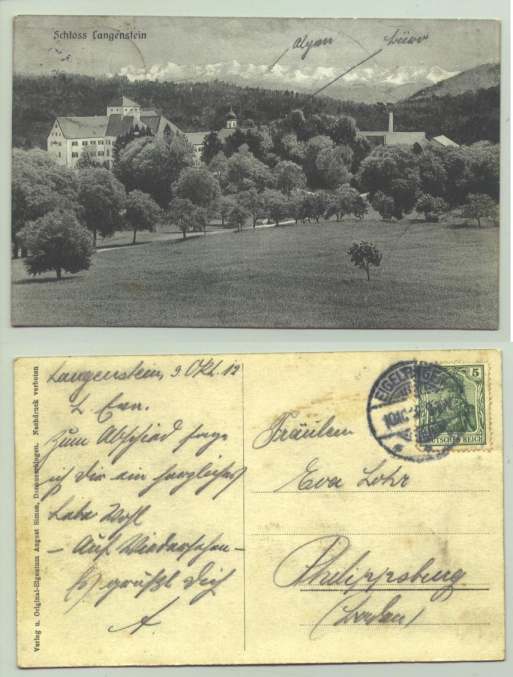 Schloss Langenstein
Langenstein, 9. Okt. 12
L. Eva.
Zum Abschied sage
ich Dir ein herzliches
Lebe Wohl
- Auf Wiedersehen -
Es grüßt Dich
A
Fräulein
Eva Lohr
Philippsburg
(Baden)
5
DEUTSCHES REICH
Verlag u. Original-Eigentum August Simon, Nachdruck verboten